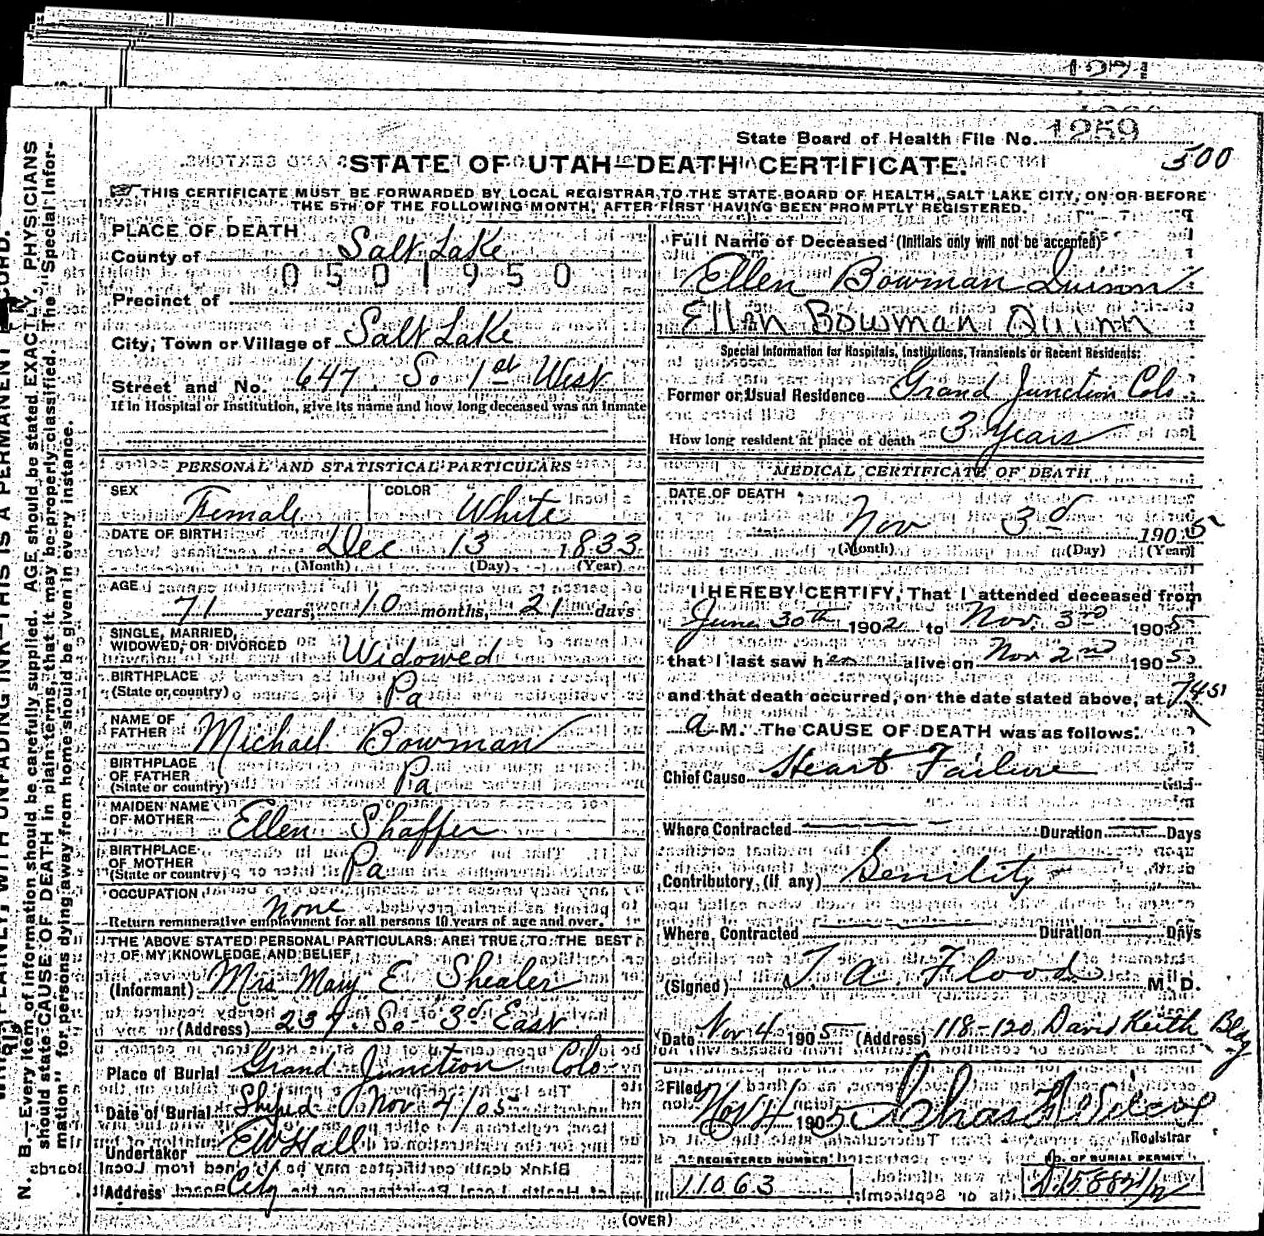 State Board of Health File No. 1259
500
STATE OF UTAH—DEATH CERTIFICATE.
THIS CERTIFICATE MUST BE FORWARDED BY LOCAL REGISTRAR TO THE STATE BOARD OF HEALTH, SALT LAKE CITY, ON OR BEFORE
THE 5TH OF THE FOLLOWING MONTH, AFTER FIRST HAVING BEEN PROMPTLY REGISTERED.
PLACE OF DEATH
County of Salt Lake
0501950
Precinct of
City, Town or Village of Salt Lake
Street and No. 647 So 1st West
If in Hospital or Institution, give its name and how long deceased was an inmate
PERSONAL AND STATISTICAL PARTICULARS
SEX Female COLOR White
DATE OF BIRTH Dec 13 1833
(Month) (Day) (Year)
AGE 71 years, 10 months, 21 days
SINGLE, MARRIED,
WIDOWED, OR DIVORCED Widowed
BIRTHPLACE
(State or country) Pa
NAME OF
FATHER Michael Bowman
BIRTHPLACE
OF FATHER
(State or country) Pa
MAIDEN NAME
OF MOTHER Ellen Shaffer
BIRTHPLACE
OF MOTHER
(State or country) Pa
OCCUPATION none
Return remunerative employment for all persons 10 years of age and over.
THE ABOVE STATED PERSONAL PARTICULARS ARE TRUE TO THE BEST
OF MY KNOWLEDGE AND BELIEF
(Informant) Mrs Mary E Shealer
(Address) 237 So 3d East
Place of Burial Grand Junction Colo
Date of Burial Shiped Nov 4/05
Undertaker EW Hall
Address City
Full Name of Deceased (Initials only will not be accepted)
Ellen Bowman
Ellen Bowman Quinn
Special Information for Hospitals, Institutions, Transients or Recent Residents:
Former or Usual Residence Grand Junction Colo
How long resident at place of death 3 Years
MEDICAL CERTIFICATE OF DEATH
DATE OF DEATH
Nov 3d 1905
(Month) (Day) (Year)
I HEREBY CERTIFY, That I attended deceased from
June 30th 1902 to Nov. 3rd 1905
that I last saw her alive on Nov 2nd 1905
and that death occurred, on the date stated above, at 745
a M. The CAUSE OF DEATH was as follows:
Chief Cause Heart Failure
Where Contracted Duration Days
Contributory, (if any) Senility
Where Contracted Duration Days
(Signed) T. A. Flood M. D.
Date Nov 4 1905 (Address) 118-120 David Keith Bldg
Filed Nov 4 1905 Chas
Registrar
REGISTERED NUMBER NO. OF BURIAL PERMIT
11063
(OVER)
N. B.—Every item of information should be carefully supplied. AGE should be stated EXACTLY. PHYSICIANS
should state CAUSE OF DEATH in plain terms, that it may be properly classified. The "Special Infor-
mation" for persons dying away from home should be given in every instance.
PLAINLY, WITH UNFADING INK—THIS IS A PERMANENT